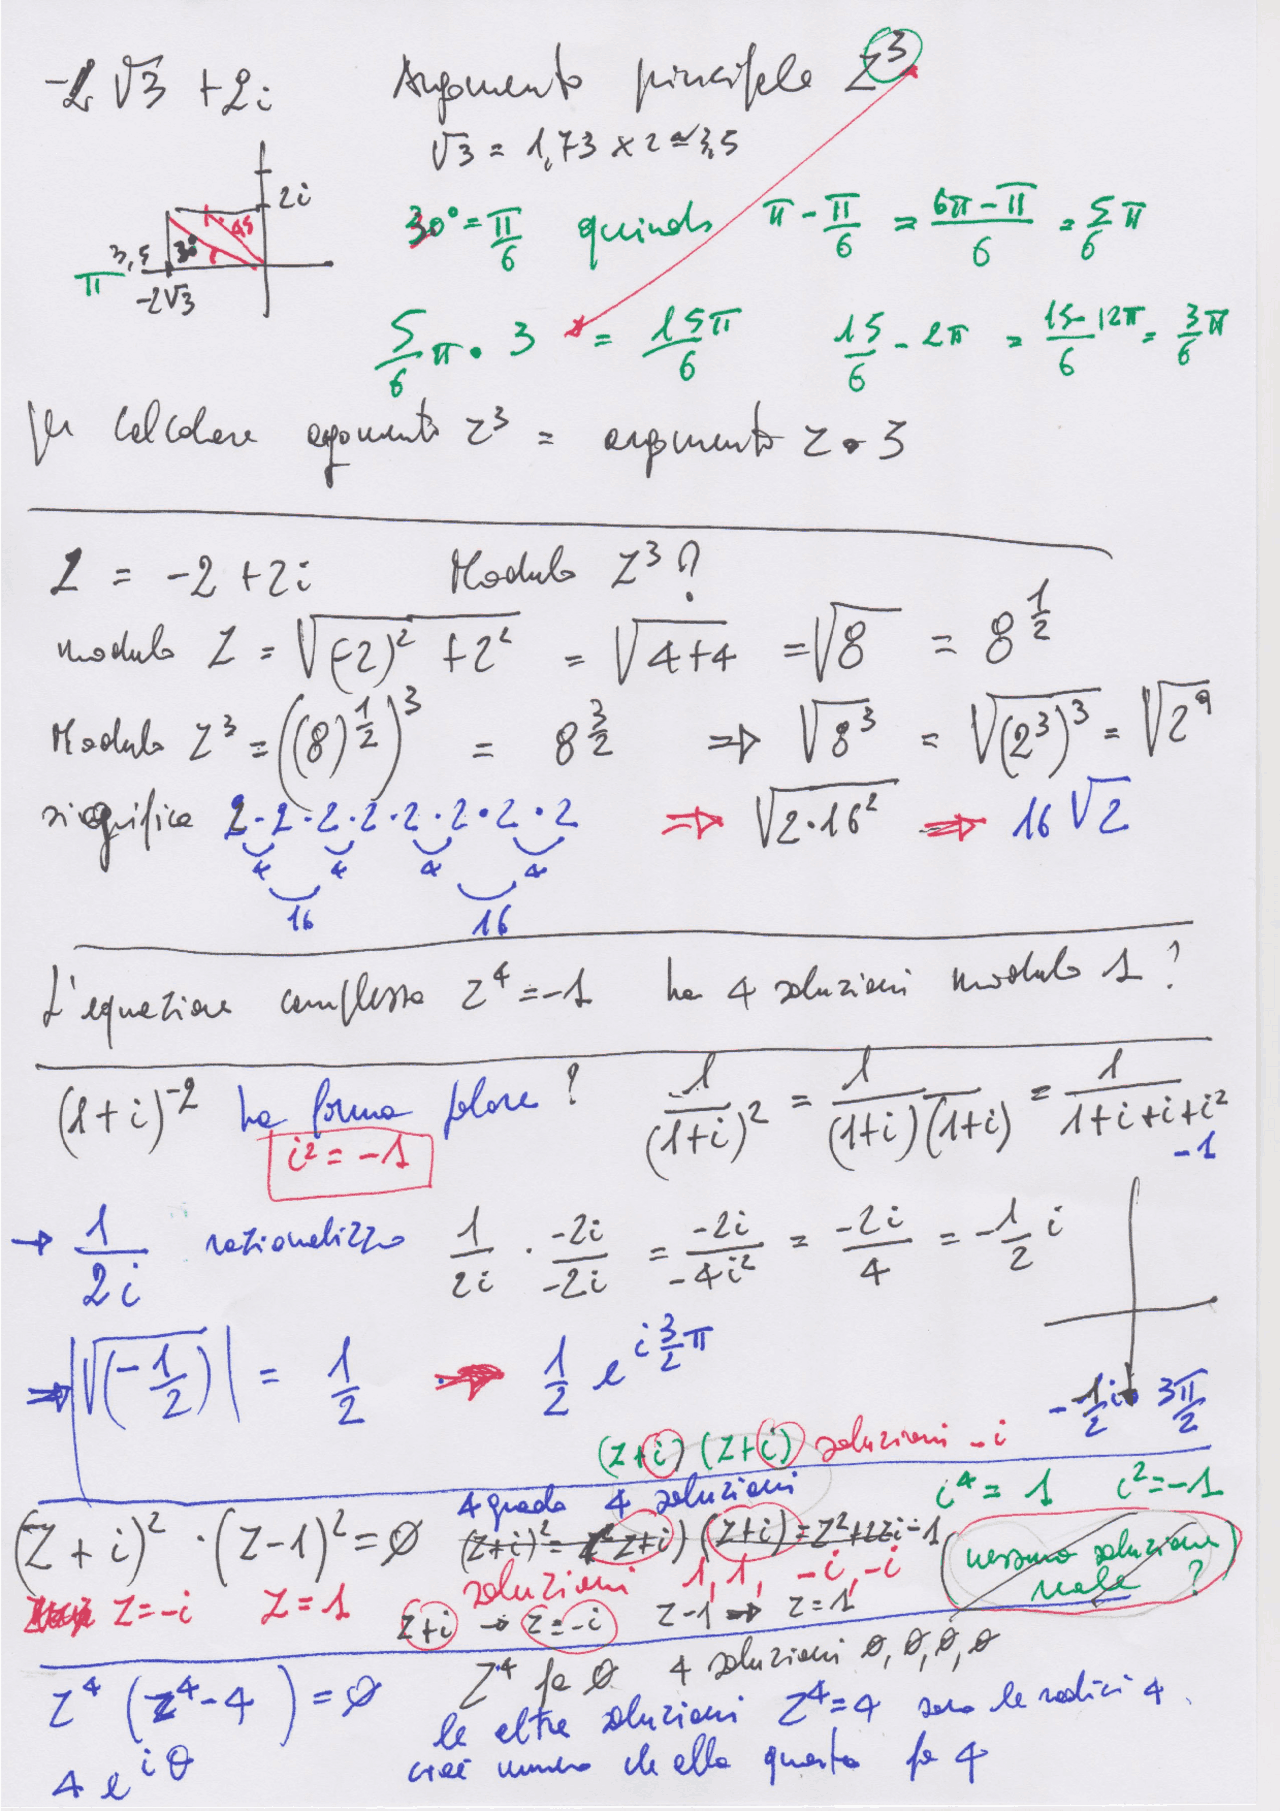 -2√3 +2i Argomento principale Z³
√3 = 1,73 x 2 ≃ 3,5
2i
45
3,5 30°
π
-2√3
30° = π/6 quindi π - π/6 = (6π - π)/6 = 5/6 π
5/6 π · 3 = 15π/6 15/6 - 2π = (15 - 12π)/6 = 3/6 π
Per calcolare argomento Z³ = argomento Z · 3
Z = -2 +2i Modulo Z³?
modulo Z = √((-2)² + 2²) = √(4+4) = √8 = 8^(1/2)
Modulo Z³ = ((8)^(1/2))³ = 8^(3/2) ⇒ √8³ = √(2³)³ = √2⁹
significa 2·2·2·2·2·2·2·2 ⇒ √(2·16²) ⇒ 16√2
4 4 4 4
16 16
L'equazione complessa Z⁴ = -1 ha 4 soluzioni modulo 1?
(1+i)⁻² ha forma polare? 1/(1+i)² = 1/((1+i)(1+i)) = 1/(1+i+i+i²)
i² = -1 -1
→ 1/2i razionalizzo 1/2i · -2i/-2i = -2i/-4i² = -2i/4 = -1/2 i
⇒ |√(-1/2)| = 1/2 → 1/2 e^(i 3/2 π)
-1/2 i 3π/2
(Z+i) (Z+i) soluzioni -i
4 grado 4 soluzioni i⁴ = 1 i² = -1
(Z+i)² · (Z-1)² = 0 (Z+i)² = Z+i) (Z+i) = Z²+2Zi-1 nessuna soluzione reale ?
soluzioni 1, 1, -i, -i
Z=-i Z=1 Z+i → Z=-i Z-1 ⇒ Z=1
Z⁴ (Z⁴-4) = 0 Z⁴ fa 0 4 soluzioni 0, 0, 0, 0
le altre soluzioni Z⁴=4 sono le radici 4
4 e^(iθ) cioè numero che alla quarta fa 4